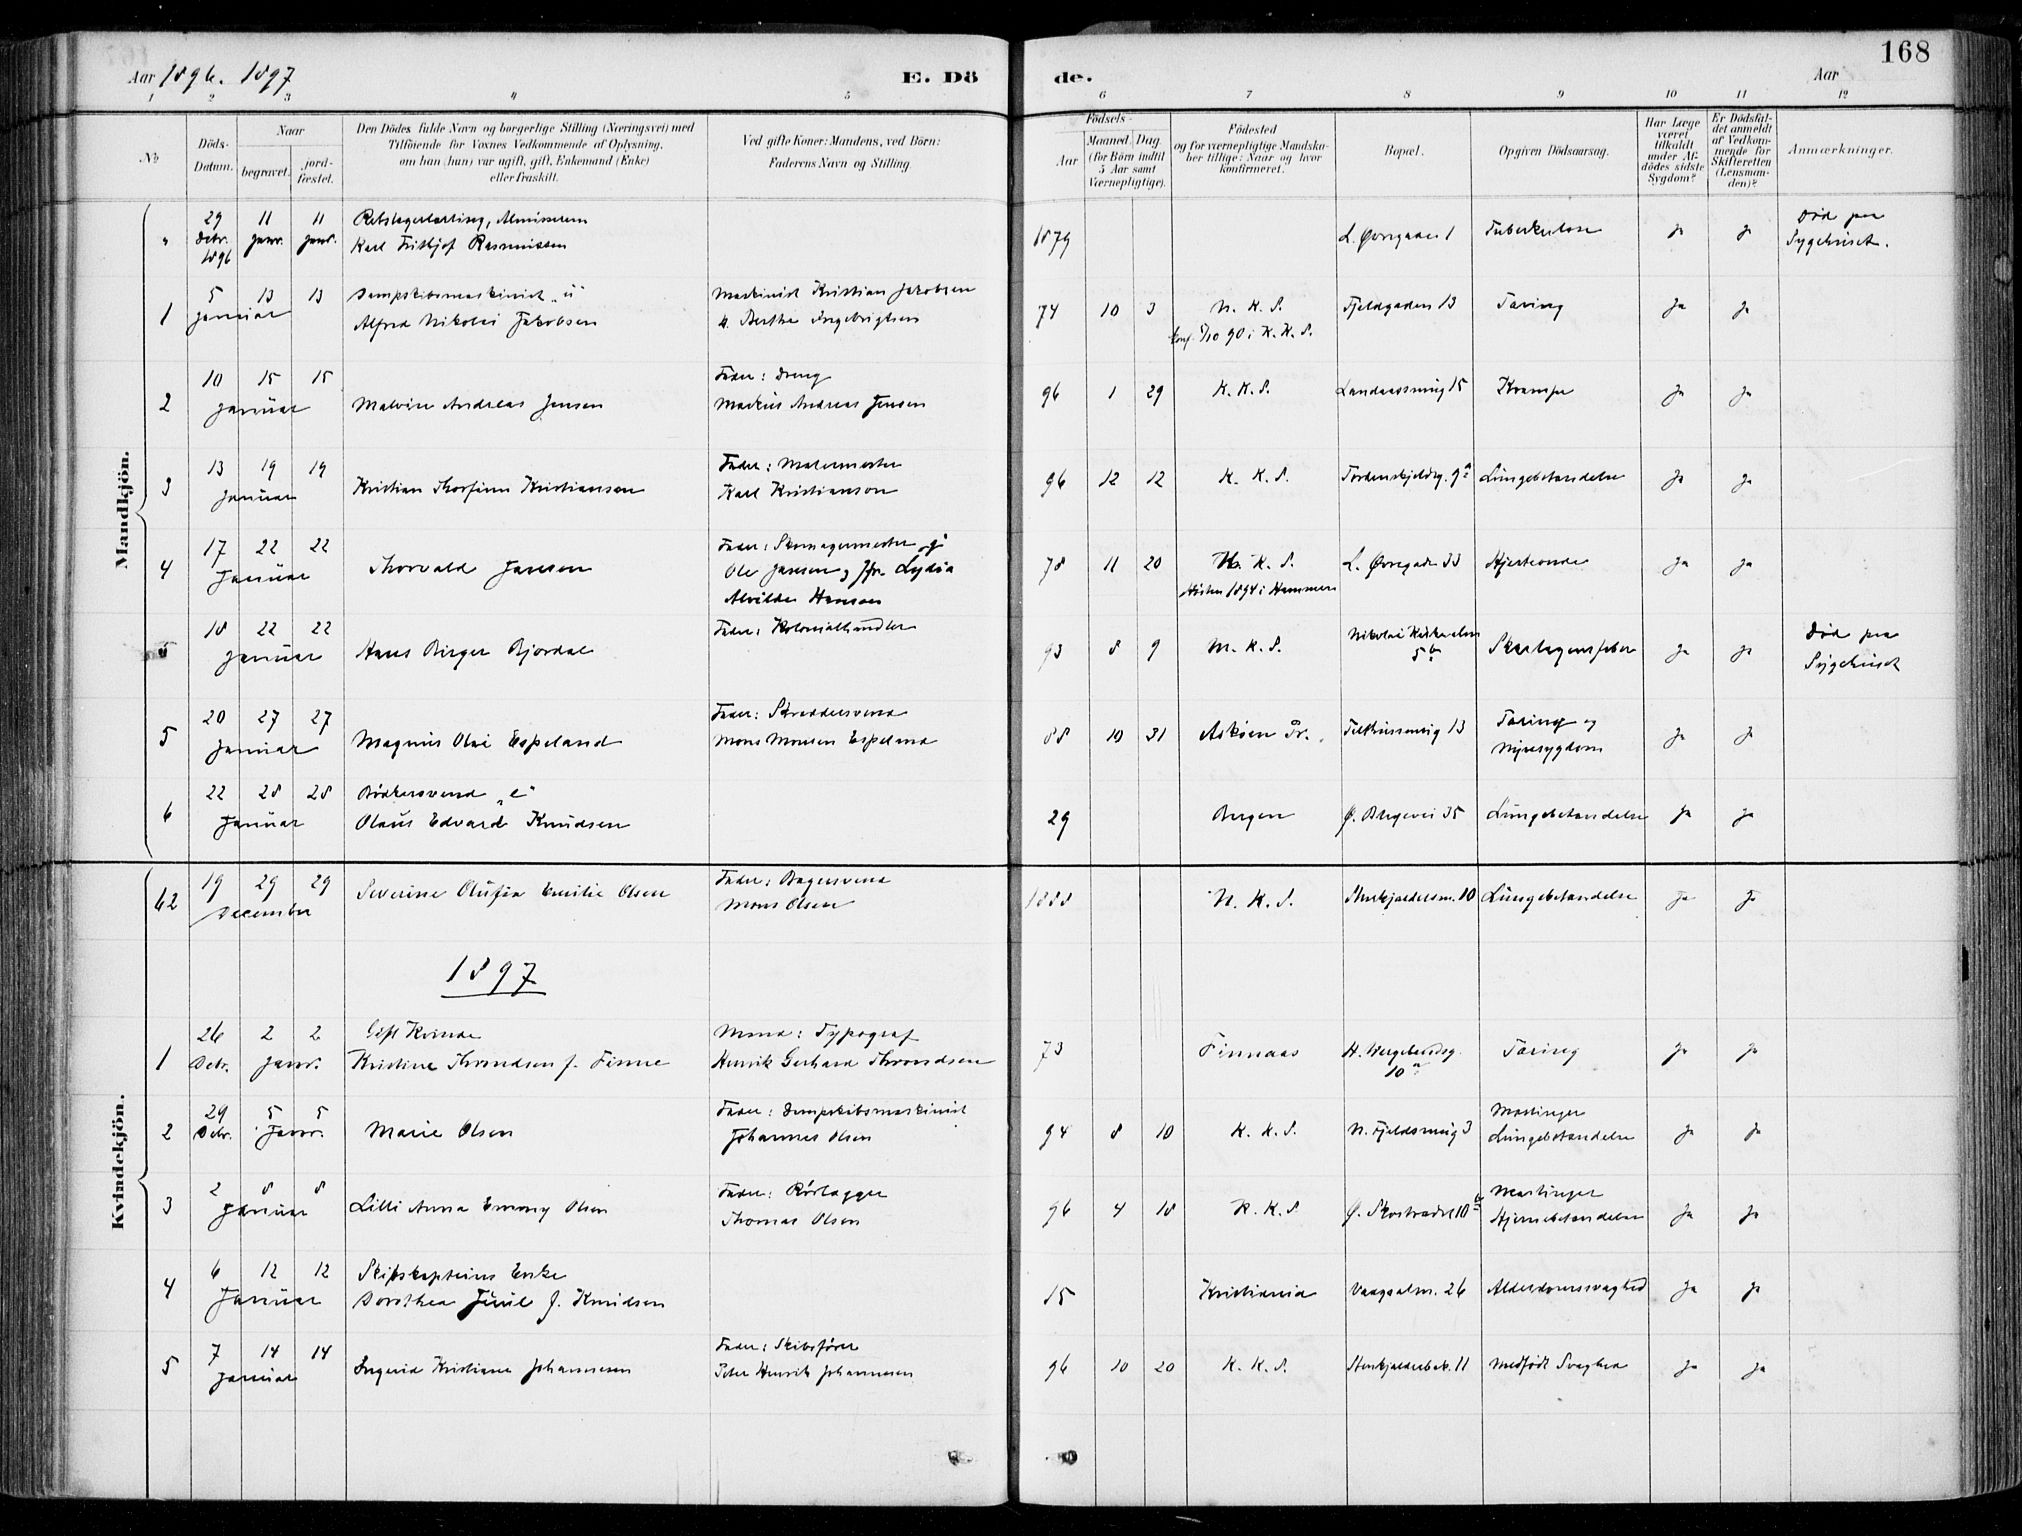 168
Aar 1896. 1897
E. Dö
de.
Aar
1 2 3 4 5
6 7 8 9 10 11 12
No
Döds-
Datum.
Naar
begravet.
jord-
fæstet.
Den Dödes fulde Navn og borgerlige Stilling (Næringsvei) med
Tilföiende for Voxnes Vedkommende af Oplysning,
om han (hun) var ugift, gift, Enkemand (Enke)
eller fraskilt.
Ved gifte Koner: Mandens, ved Börn:
Faderens Navn og Stilling.
Födsels-
Aar
Maaned.
Dag.
(for Börn indtil
5 Aar samt
Værnepligtige).
Födested
og for værnepligtige Mandska-
ber tillige: Naar og hvor
konfirmeret.
Bopæl.
Opgiven Dödsaarsag.
Har Læge
været
tilkaldt
under Af-
dödes sidste
Sygdom?
Er Dödsfal-
det anmeldt
af Vedkom-
mende for
Skifteretten
(Lensman-
den)?
Anmærkninger.
Mandkjön.
" 29 Debr. 1896 11 Janr. 11 Janr.
Karl Fritkjof Rasmussen
1879 L. Øvregaden 1 Tuberkulose Ja Ja Død paa
Sygehuset.
1 5 13 13 Januar
Dampskibsmaskinist "u"
Alfred Nikolai Jakobsen
Maskinist Kristian Jakobsen
Berthe Ingebrigtsen
74 10 3 N. K. S. Fjeldgaden 13 Tæring Ja Ja
90 i K. K. S.
2 10 15 15 Januar
Malvin Andreas Jensen
Fader: Dreng
Markus Andreas Jensen
96 1 29 K. K. S. Landaassmug 15 Krampe Ja Ja
3 13 19 19 Januar
Kristian Thorfinn Kristiansen
Fader: Malermester
Karl Kristiansen
96 12 12 K. K. S. Tordenskjoldsg. 9a Lungebetændelse Ja Ja
4 17 22 22 Januar
Thorvald Jansen
Fader: Skomagermester "g"
Ole Jansen og Jfr. Lydia
Alvilde Hansen
78 11 20 K. S. L. Øvregade 33 Hjerteonde Ja Ja
Høsten 1894 i Hammer
18 22 22 Januar
Hans Birger Bjordal
Fader: Kolonialhandler
93 8 9 M. K. S. Nikolai Kirkealm
5b Skarlagensfeber Ja Ja Død paa
Sygehuset
5 20 27 27 Januar
Magnus Olai Espeland
Fader: Skræddersvend
Mons Monsen Espeland
88 10 31 Askøen Pr. 13 Tæring og
Nyresygdom Ja Ja
6 22 28 28 Januar
Bødkersvend "e"
Olaus Edvard Knudsen
29 Bergen Ø. Blegevei 35 Lungebetændelse Ja Ja
Kvindekjön.
62 19 29 29 December
Severine Olufia Emilie Olsen
Fader: Bagersvend
Mons Olsen
1888 N. K. S. 10 Lungebetændelse Ja Ja
1897
1 26 Debr. 2 2 Janr.
Gift Kvinde
Kristine Throndsen f. Finne
Mand: Typograf
Henrik Gerhard Throndsen
73 Finnaas H. Wergelandsg.
10a Tæring Ja Ja
2 29 Debr. 5 5 Janr.
Marie Olsen
Fader: Dampskibsmaskinist
Johannes Olsen
94 8 10 K. K. S. N. Fjeldsmug 3 Mæslinger
Lungebetændelse Ja Ja
3 2 8 8 Januar
Lilli Anna Emmy Olsen
Fader: Rørlægger
Thomas Olsen
96 4 18 K. K. S Ø. Skostrædet 10 Mæslinger
Hjernebetændelse Ja Ja
4 6 12 12 Januar
Skipskapteins Enke
Dorothea Juul f. Knudsen
15 Kristiania Vaagsalm. 26 Alderdomssvaghed Ja Ja
5 7 14 14 Januar
Ingerid Kristiane Johannesen
Fader: Skibsfører
Peter Henrik Johannesen
96 10 20 K. K. S. 11 Medfødt Svaghed Ja Ja